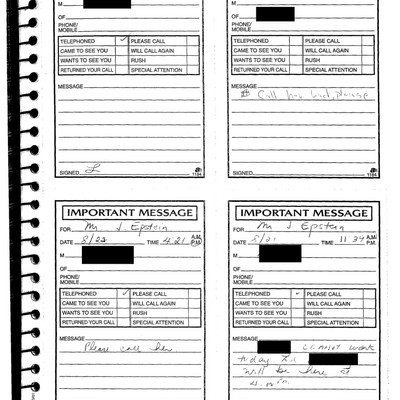 M
OF
PHONE/
MOBILE
TELEPHONED ✓ PLEASE CALL
CAME TO SEE YOU WILL CALL AGAIN
WANTS TO SEE YOU RUSH
RETURNED YOUR CALL SPECIAL ATTENTION
MESSAGE
SIGNED L
1184
M
OF
PHONE/
MOBILE
TELEPHONED PLEASE CALL
CAME TO SEE YOU WILL CALL AGAIN
WANTS TO SEE YOU RUSH
RETURNED YOUR CALL SPECIAL ATTENTION
MESSAGE
Call please
SIGNED
1184
IMPORTANT MESSAGE
FOR M J Epstein
DATE TIME 4 21 A.M. P.M.
M
OF
PHONE/
MOBILE
TELEPHONED ✓ PLEASE CALL
CAME TO SEE YOU WILL CALL AGAIN
WANTS TO SEE YOU RUSH
RETURNED YOUR CALL SPECIAL ATTENTION
MESSAGE
Please call her
IMPORTANT MESSAGE
FOR M J Epstein
DATE 8/21 TIME 11 39 A.M. P.M.
M
OF
PHONE/
MOBILE
TELEPHONED PLEASE CALL
CAME TO SEE YOU WILL CALL AGAIN
WANTS TO SEE YOU RUSH
RETURNED YOUR CALL SPECIAL ATTENTION
MESSAGE
cannot work
today
will be here at